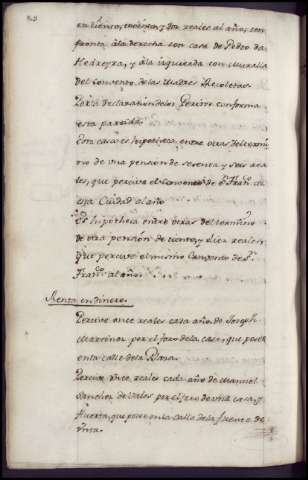 en ciento, noventa, y dos reales al año, con
fronta â la derecha con casa de Pedro da
Pedreyra, y â la izquierda con Muralla
del convento de las Madres Recoletas
por la declaracion de los Peritos conforma
esta partida
Esta casa es hipotheca entre otras del termi
no de una pension de setenta y seis rea
les, que percive el convento de Sn Franco de
esta Ciudad al año
Es hipotheca entre otras del termino
de otra pensión de ciento, y diez reales
que percive el mismo Convento de Sn
Franco al año
Renta en dinero.
Percive once reales cada año, de Joseph
Martinez por el foro de la casa que posehe
en la calle de la Plaza.
Percive once reales cada año de Manuel
Sanchez de Valos por el foro de una casa, y
Huerta, que posehe en la calle de la fuente de
Unta.